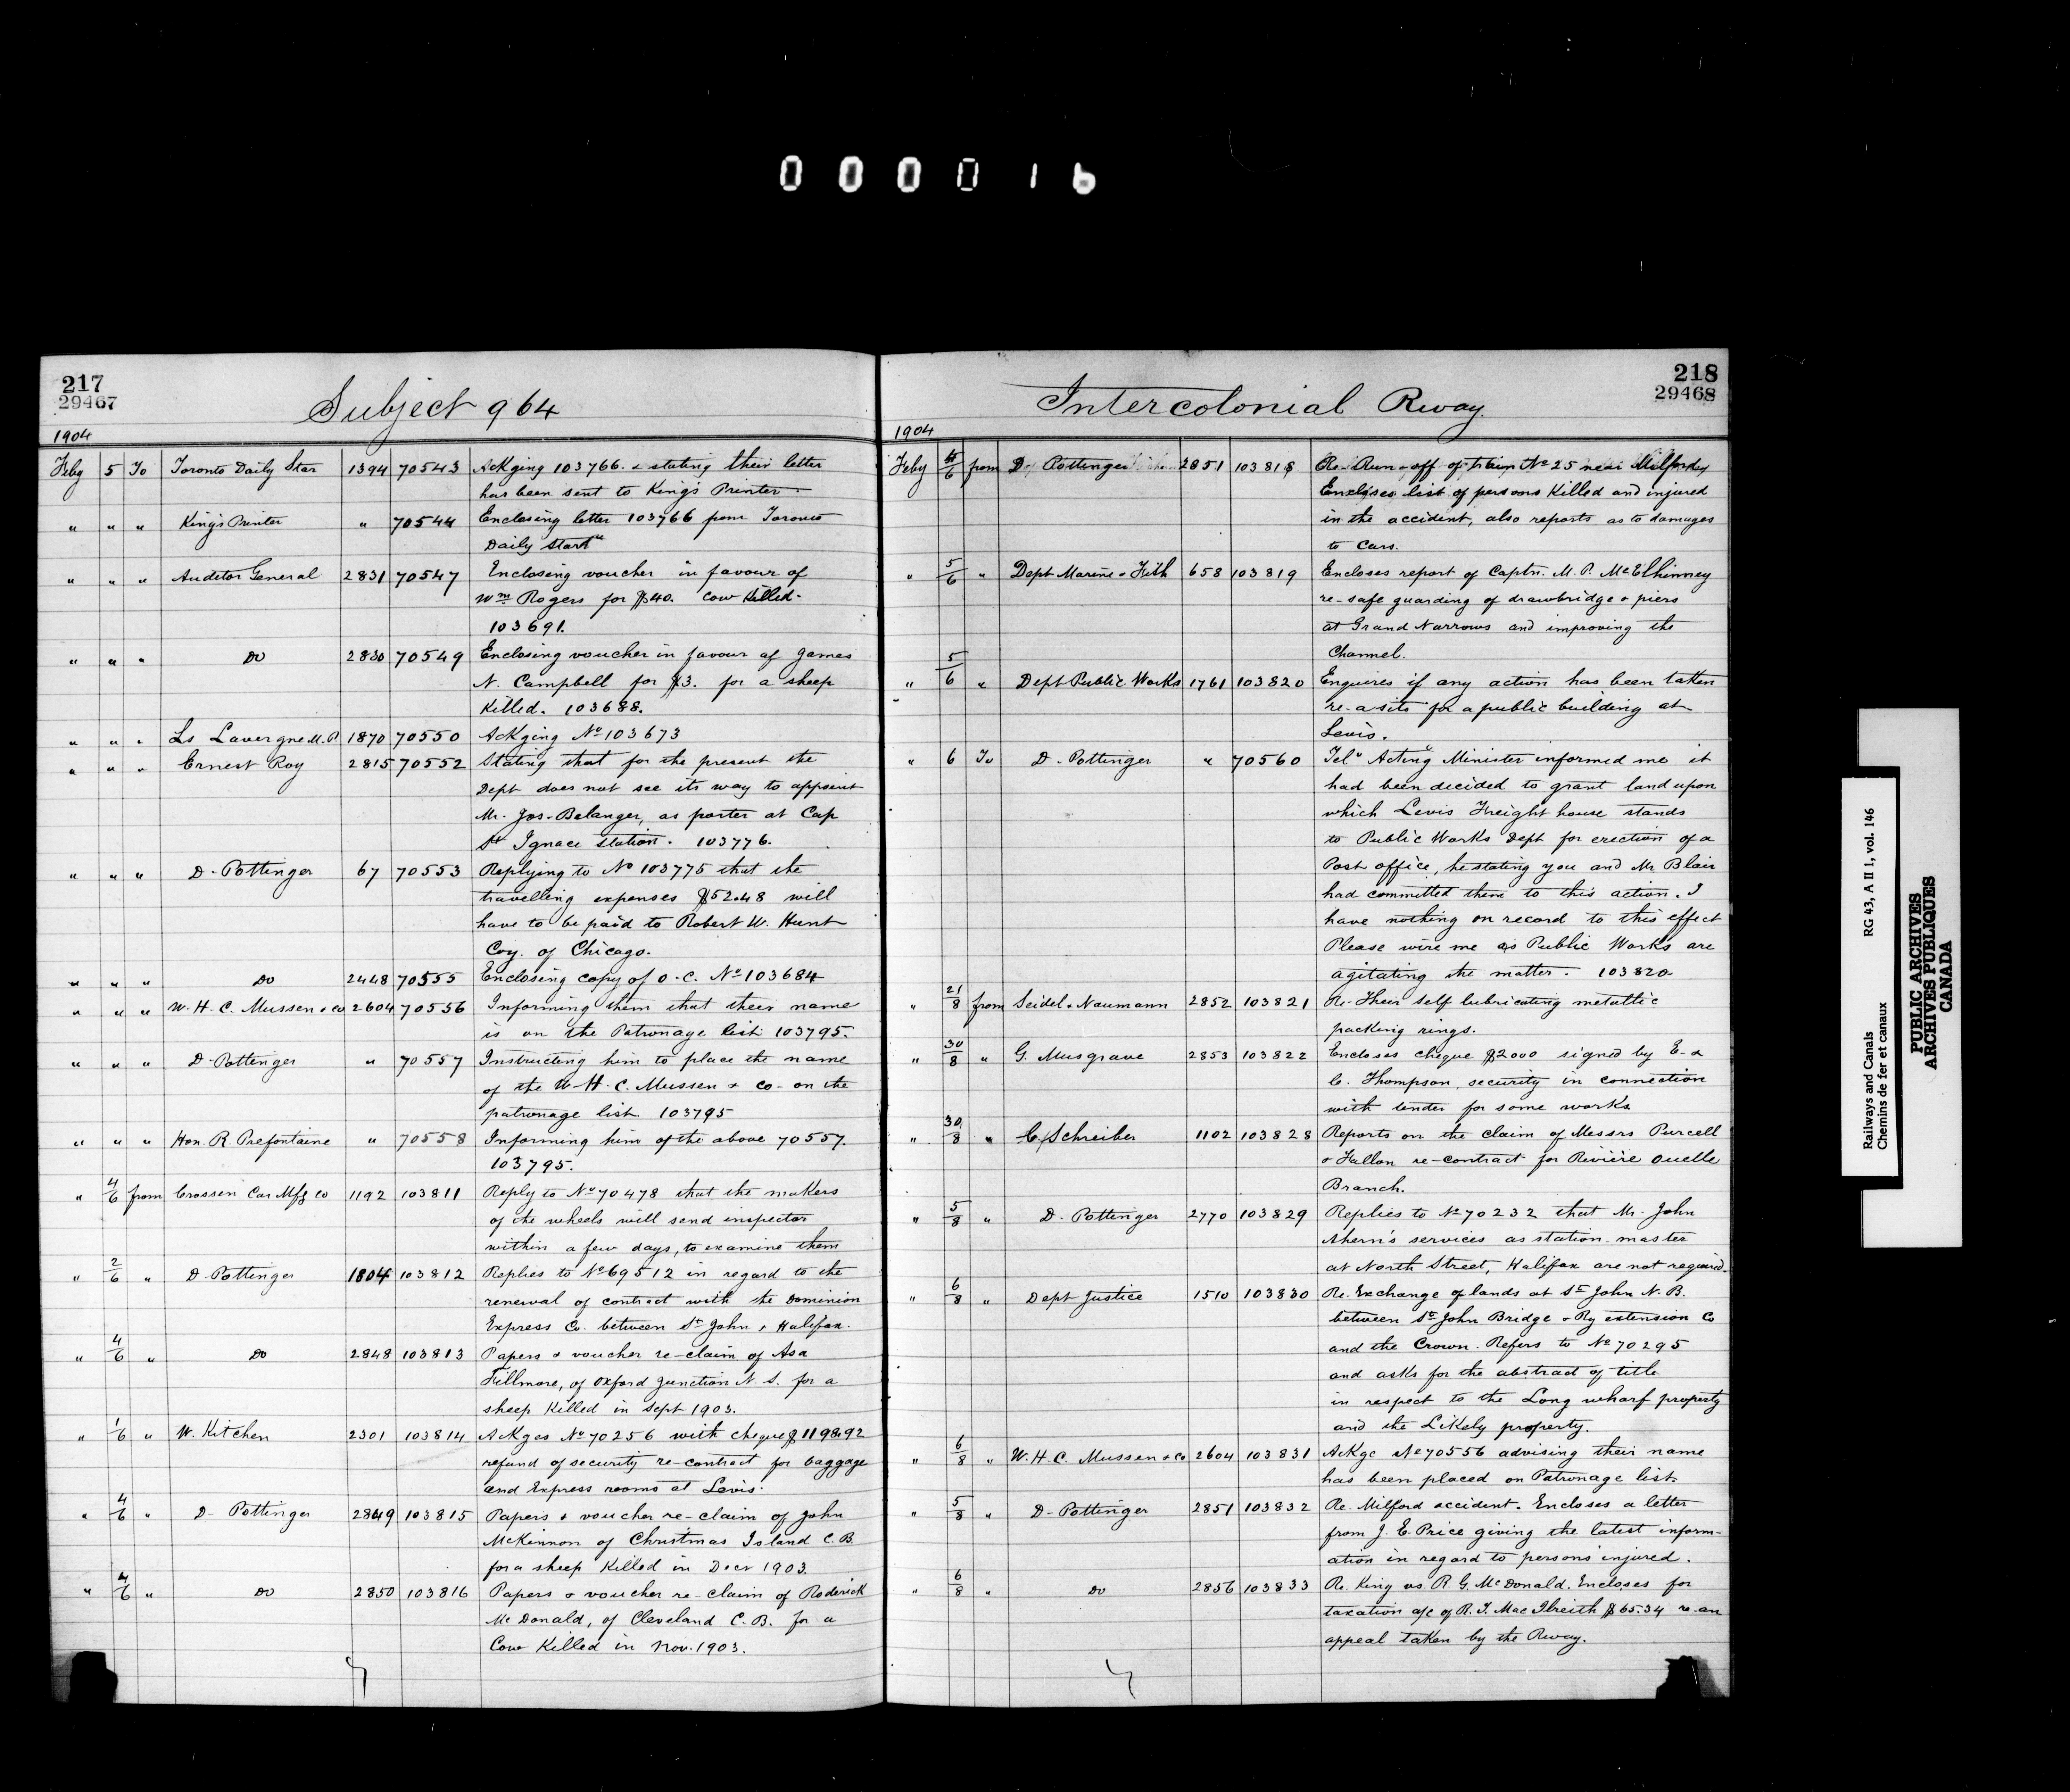 000016
217
29467
Subject 964
1904
Feby 5 To Toronto Daily Star 1394 70543 Ackging 103766. & stating their letter
has been sent to King's Printer.
" " " King's Printer " 70544 Enclosing letter 103766 from Toronto
Daily Star"
" " " Auditor General 2831 70547 Enclosing voucher in favour of
Wm Rogers for $40. Cow Killed.
103691.
" " " Do 2830 70549 Enclosing voucher in favour of James
N. Campbell for $3. for a sheep
Killed. 103688.
" " " Ls Lavergne M.P. 1870 70550 Ackging No 103673
" " " Ernest Roy 2815 70552 Stating that for the present the
Dept does not see its way to appoint
Mr. Jos. Belanger, as porter at Cap
St Ignace station. 103776.
" " " D. Pottinger 67 70553 Replying to No 103775 that the
travelling expenses $52.48 will
have to be paid to Robert W. Hunt
Coy. of Chicago.
" " " Do 2448 70555 Enclosing copy of O.C. No 103684
" " " W. H. C. Mussen & Co 2604 70556 Informing them that their name
is on the Patronage list 103795.
" " " D. Pottinger " 70557 Instructing him to place the name
of the W. H. C. Mussen & Co. on the
patronage list. 103795
" " " Hon. R. Prefontaine " 70558 Informing him of the above 70557.
103795.
" 4/6 from Crossen Car Mfg Co 1192 103811 Reply to No 70478 that the makers
of the wheels will send inspector
within a few days, to examine them
" 2/6 " D. Pottinger 1804 103812 Replies to No 69512 in regard to the
renewal of contract with the Dominion
Express Co. between St John & Halifax.
" 4/6 " Do 2848 103813 Papers & voucher re-claim of Asa
Fillmore, of Oxford Junction N.S. for a
sheep Killed in Sept 1903.
" 1/6 " W. Kitchen 2301 103814 Ackges No 70256 with cheque $1198.92
refund of security re-contract for baggage
and Express rooms at Levis.
" 4/6 " D. Pottinger 2849 103815 Papers & voucher re-claim of John
McKinnon of Christmas Island C.B.
for a sheep Killed in Decr 1903.
" 4/6 " Do 2850 103816 Papers & voucher re-claim of Roderick
McDonald, of Cleveland C.B. for a
Cow Killed in Nov. 1903.
218
29468
Intercolonial Rway.
1904
Feby 5/6 from D. Pottinger 2851 103818 Re. Run-off of train No 25 near Milford
Encloses list of persons Killed and injured
in the accident, also reports as to damages
to Cars.
" 5/6 " Dept Marine & Fish 658 103819 Encloses report of Captn. M. P. McElhinney
re-safe guarding of drawbridge & piers
at Grand Narrows and improving the
Channel.
" 5/6 " Dept Public Works 1761 103820 Enquires if any action has been taken
re-a site for a public building at
Levis.
" 6 To D. Pottinger " 70560 Tel" Acting Minister informed me it
had been decided to grant land upon
which Levis Freight house stands
to Public Works Dept for erection of a
Post office, he stating you and Mr Blair
had committed them to this action. I
have nothing on record to this effect
Please wire me as Public Works are
agitating the matter. 103820
" 21/8 from Seidel & Naumann 2852 103821 Re. Their self lubricating metallic
packing rings.
" 30/8 " G. Musgrave 2853 103822 Encloses cheque $2000 signed by E. &
C. Thompson, security in connection
with tender for some works.
" 30/8 " C. Schreiber 1102 103828 Reports on the claim of Messrs Purcell
& Fallon re-contract for Rivière Ouelle
Branch.
" 5/8 " D. Pottinger 2770 103829 Replies to No 70232 that Mr. John
Ahern's services as station-master
at North Street, Halifax are not required.
" 6/8 " Dept Justice 1510 103830 Re. Exchange of lands at St John N.B.
between St John Bridge & Ry extension Co
and the Crown. Refers to No 70295
and asks for the abstract of title
in respect to the Long wharf property
and the Likely property.
" 6/8 " W. H. C. Mussen & Co 2604 103831 Ackge No 70556 advising their name
has been placed on Patronage list.
" 5/8 " D. Pottinger 2851 103832 Re. Milford accident. Encloses a letter
from J. E. Price giving the latest inform-
ation in regard to persons injured.
" 6/8 " Do 2856 103833 Re. King vs. R. G. McDonald. Encloses for
taxation a/c of R. T. MacIlreith $65.34 re-an
appeal taken by the Rway.
Railways and Canals RG 43, A II 1, vol. 146
Chemins de fer et canaux
PUBLIC ARCHIVES
ARCHIVES PUBLIQUES
CANADA